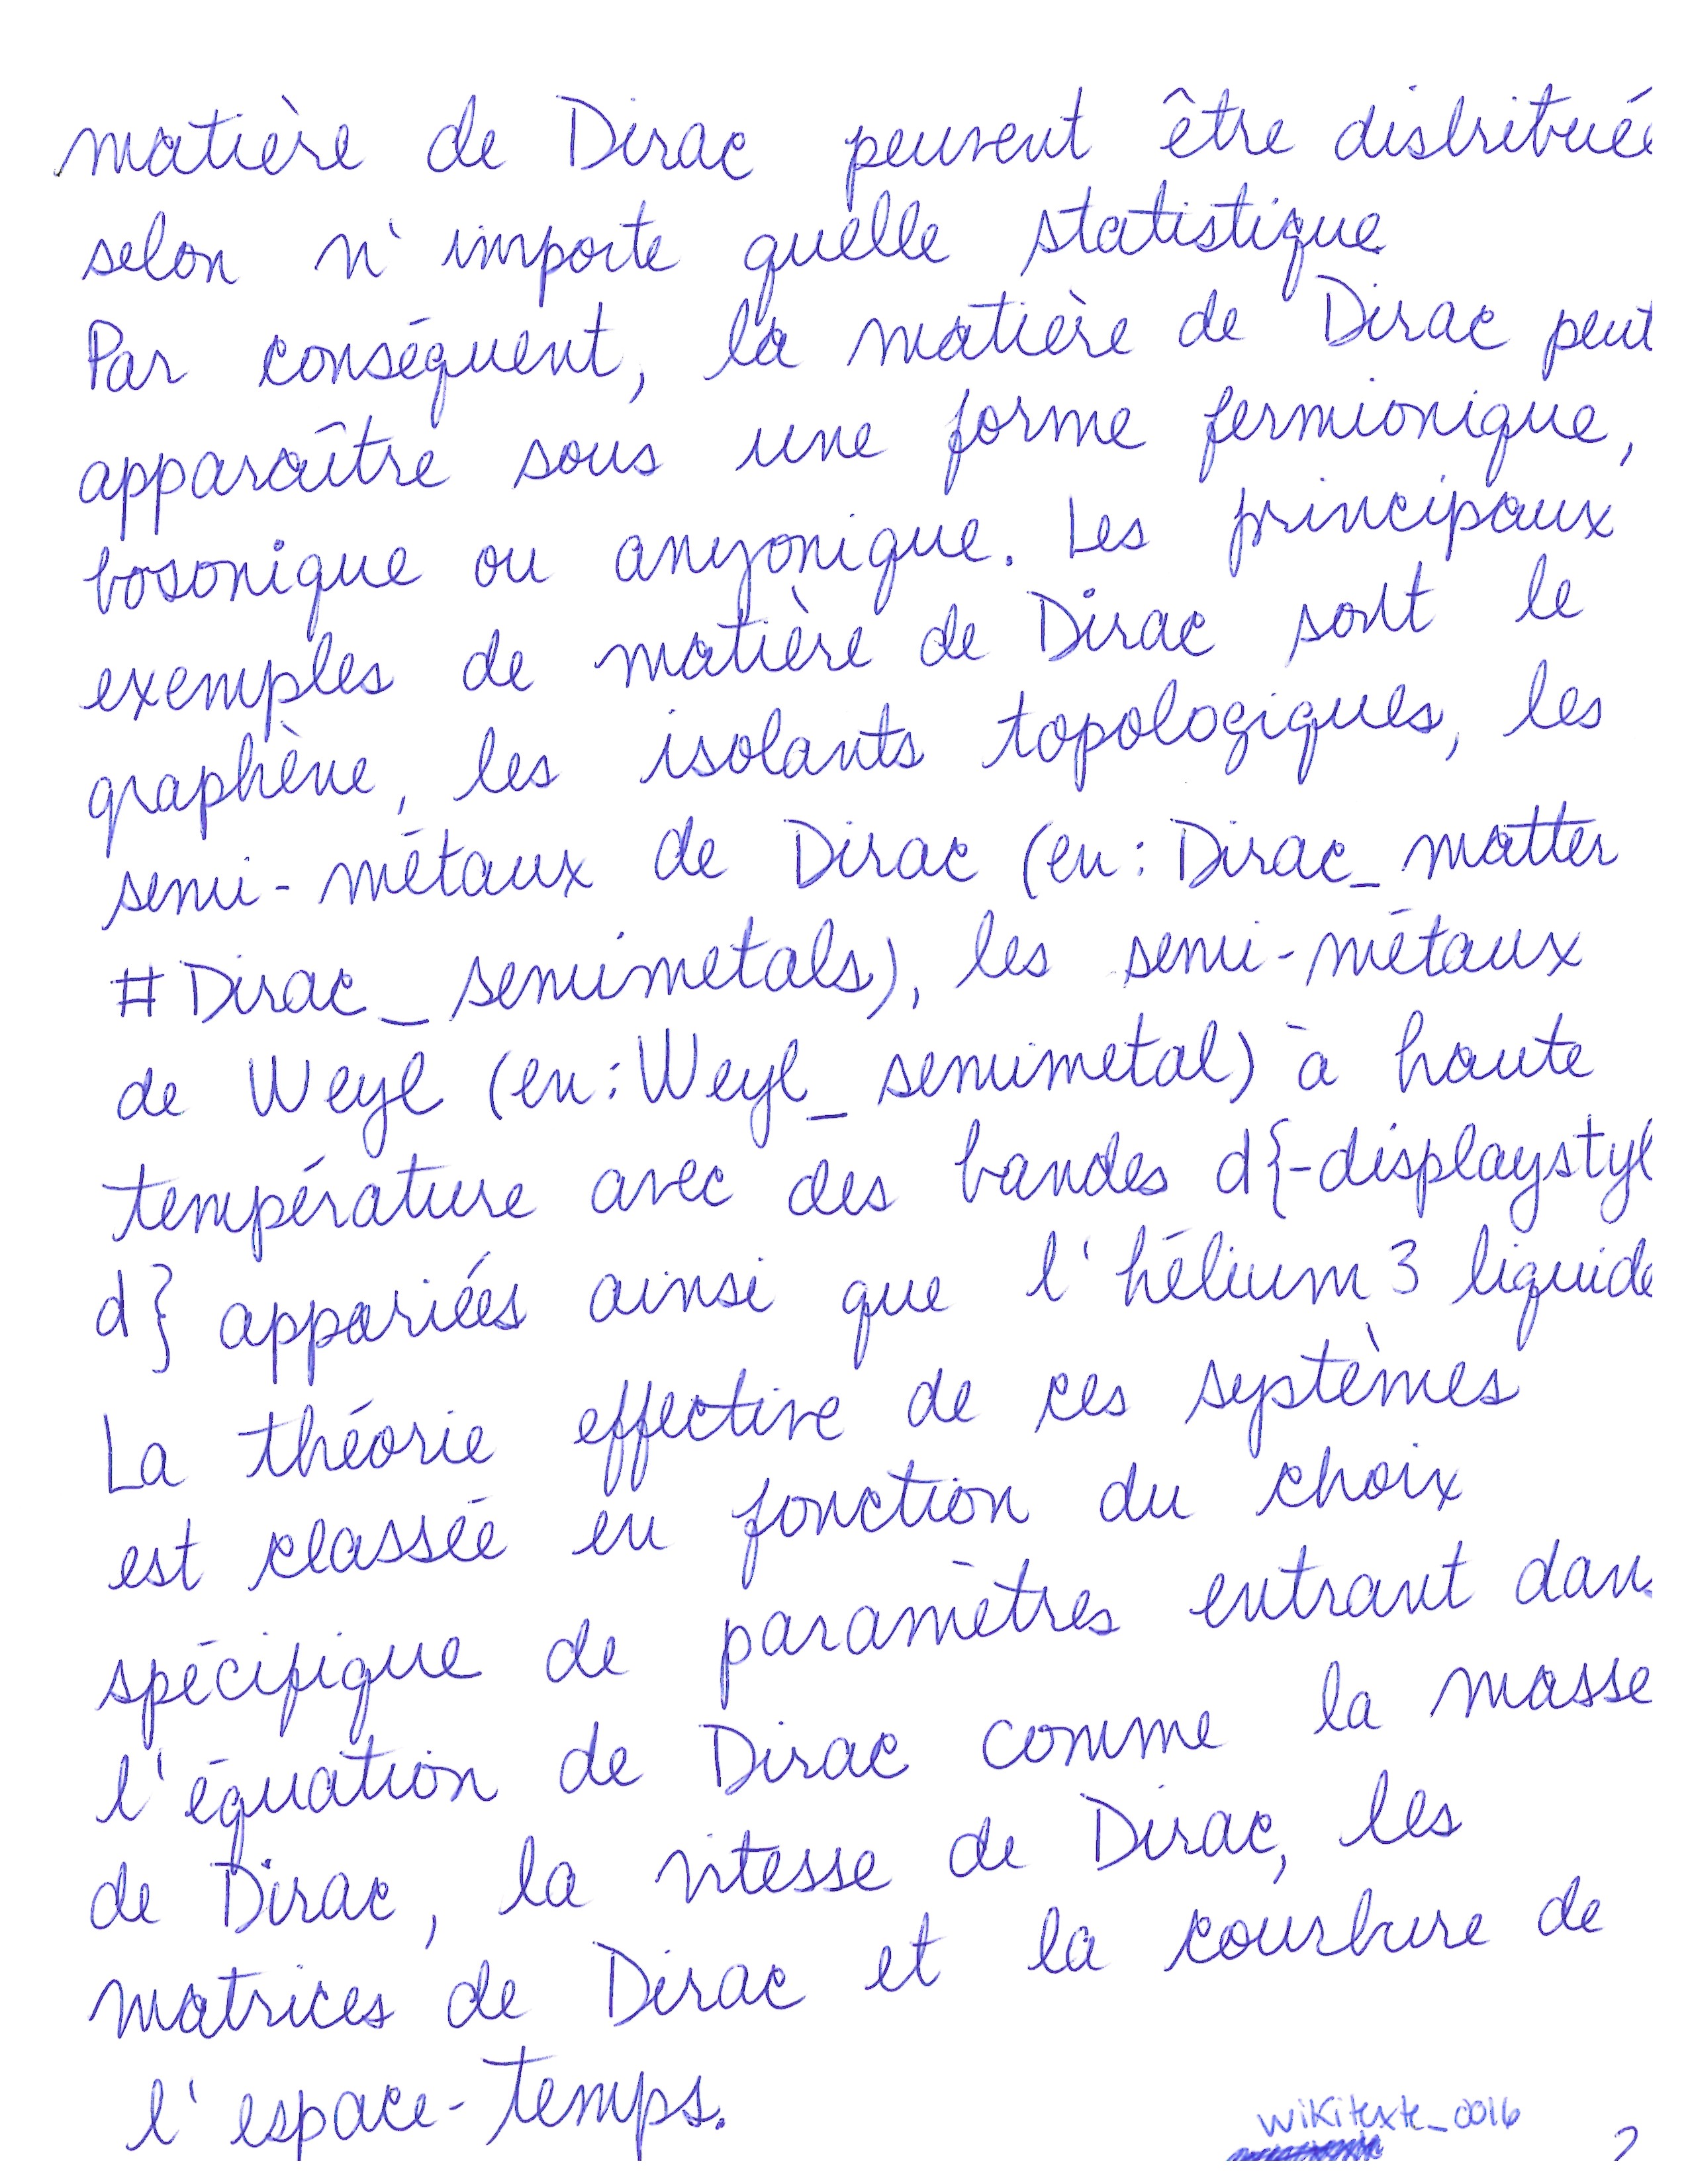 matière de Dirac peuvent être distribuée
selon n'importe quelle statistique.
Par conséquent, la matière de Dirac peut
apparaître sous une forme fermionique,
bosonique ou anyonique. Les principaux
exemples de matière de Dirac sont le
graphène, les isolants topologiques, les
semi-métaux de Dirac (en:Dirac_matter
#Dirac_semimetals), les semi-métaux
de Weyl (en:Weyl_semimetal) à haute
température avec des bandes d{-displaystyl
d} appariées ainsi que l'hélium 3 liquide
La théorie effective de ces systèmes
est classée en fonction du choix
spécifique de paramètres entrant dans
l'équation de Dirac comme la masse
de Dirac, la vitesse de Dirac, les
matrices de Dirac et la courbure de
l'espace-temps.
wikitexte_0016
2